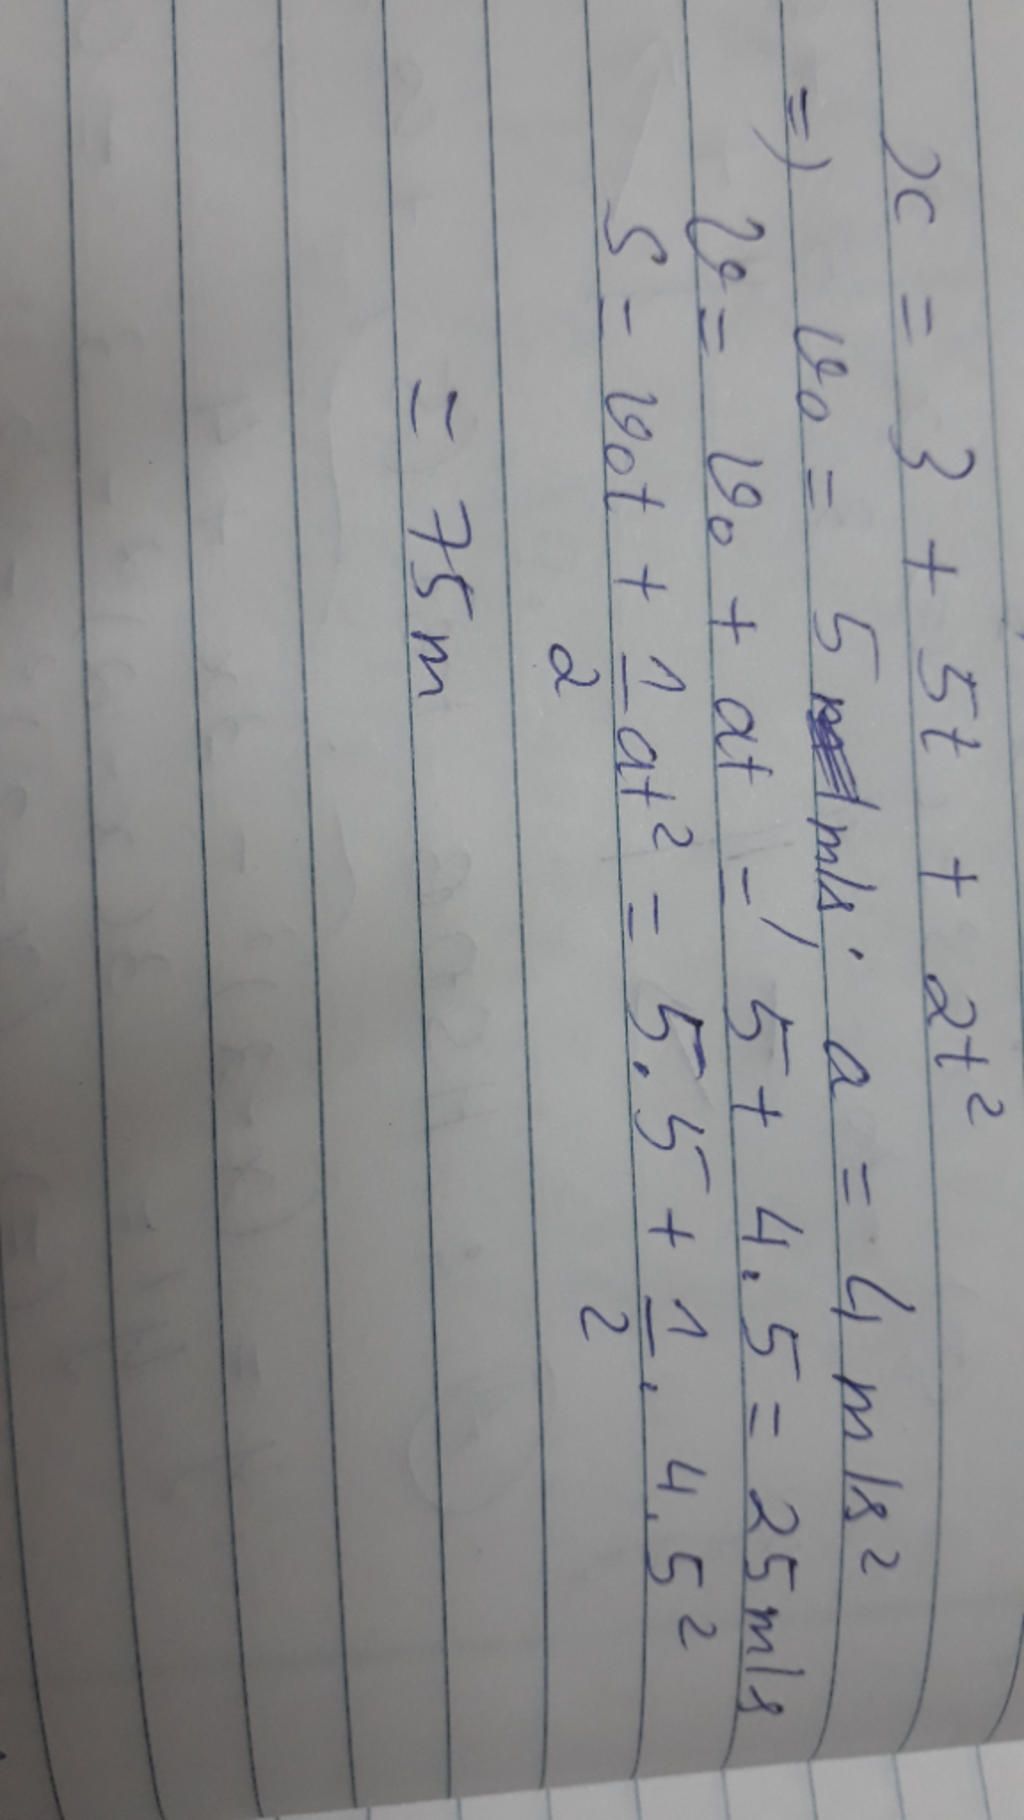 x = 3 + 5t + 2t²
=) v₀ = 5 m/s. a = 4 m/s²
v = v₀ + at =) 5 + 4.5 = 25 m/s
S = v₀t + 1/2 at² = 5.5 + 1/2 . 4.5²
= 75 m